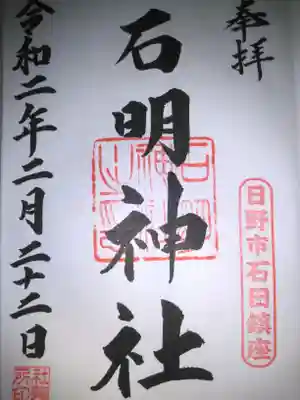 奉拝
日野市石田鎮座
石明神社
令和二年二月二十二日
社務所印